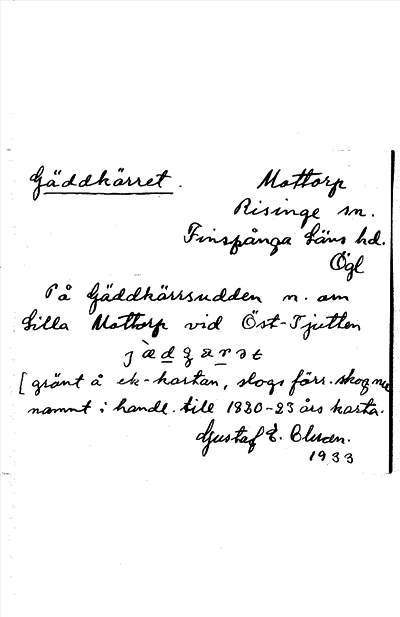 Gäddkärret. Mottorp
Risinge sn.
Finspånga läns hd.
Ögl
På Gäddkärrsudden n. om
Lilla Mottorp vid Öst-Tjutten
[grönt å ek-kartan, slogs förr. skog nu
namnt i handl. till 1820-23 års karta.
Gustaf E.
1933